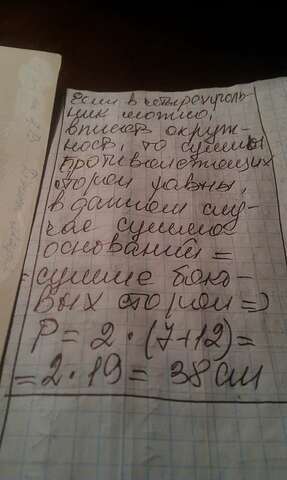 Если в четырехуголь-
ник можно
вписать окруж-
ность, то суммы
противолежащих
сторон равны,
в данном слу-
чае сумма
оснований =
= сумме боко-
вых сторон =>
P = 2 · (7+12) =
= 2 · 19 = 38 см